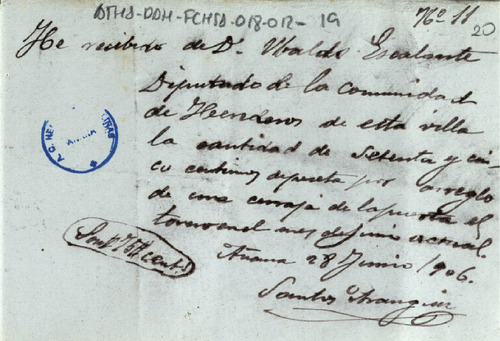 ATHA-DAH-FCHSA-018-012-19
Nº 11
20
He recibido de D. Ubaldo Escalante
Diputado de la comunidad
de Herederos de esta villa
la cantidad de Setenta y cin
co centimos de peseta por arreglo
de una cerraja de la puerta el
en el mes de junio actual.
Anana 28 Junio 1906.
Santos